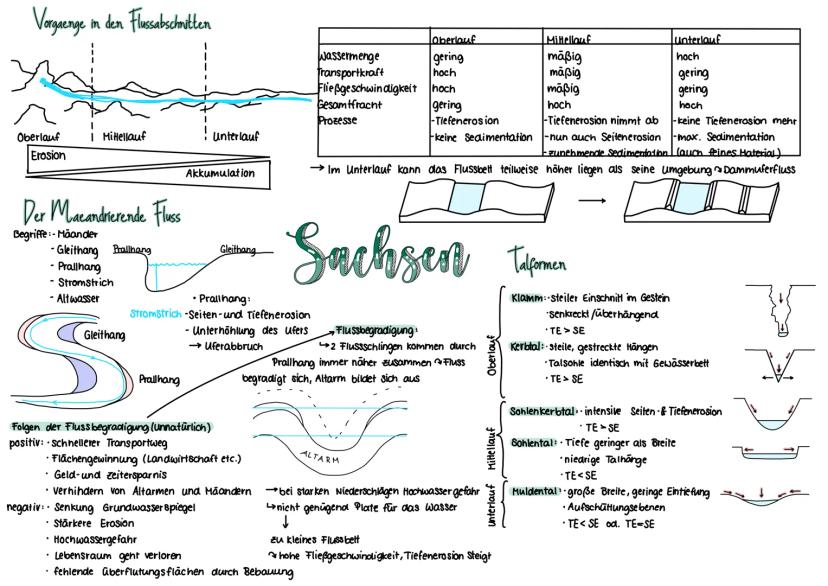 Vorgaenge in den Flussabschnitten
Oberlauf Mittellauf Unterlauf
Erosion
Akkumulation
Oberlauf Mittellauf Unterlauf
Wassermenge gering mäßig hoch
Transportkraft hoch mäßig gering
Fließgeschwindigkeit hoch mäßig gering
Gesamtfracht gering hoch hoch
Prozesse -Tiefenerosion -Tiefenerosion nimmt ab -keine Tiefenerosion mehr
-keine Sedimentation -nun auch Seitenerosion -max. Sedimentation
-zunehmende Sedimentation (auch feines Material)
→ Im Unterlauf kann das Flussbett teilweise höher liegen als seine Umgebung ↷ Dammuferfluss
Der Maeandrierende Fluss
Begriffe: - Mäander
- Gleithang
- Prallhang
- Stromstrich
- Altwasser
Prallhang Gleithang
Stromstrich
• Prallhang:
-Seiten-und Tiefenerosion
- Unterhöhlung des Ufers
→ Uferabbruch
Gleithang
Prallhang
Sachsen
Flussbegradigung:
↳ 2 Flussschlingen kommen durch
Prallhang immer näher zusammen ↷ Fluss
begradigt sich, Altarm bildet sich aus
ALTARM
Folgen der Flussbegradigung (Unnatürlich)
positiv: • schnellerer Transportweg
• Flächengewinnung (Landwirtschaft etc.)
• Geld-und Zeitersparnis
• Verhihdern von Altarmen und Mäandern
negativ: • Senkung Grundwasserspiegel
• Stärkere Erosion
• Hochwassergefahr
• Lebensraum geht verloren
• fehlende Überflutungsflächen durch Bebauung
→ bei starken Niederschlägen Hochwassergefahr
↳ nicht genügend Platz für das Wasser
↓
zu kleines Flussbett
↷ hohe Fließgeschwindigkeit, Tiefenerosion steigt
Talformen
Oberlauf
Klamm: • steiler Einschnitt im Gestein
senkreckt/überhängend
• TE > SE
Kerbtal: • steile, gestreckte Hängen
• Talsohle identisch mit Gewässerbett
• TE > SE
Mittellauf
Sohlenkerbtal: • intensive Seiten-& Tiefenerosion
• TE > SE
Sohlental: • Tiefe geringer als Breite
• niedrige Talhänge
• TE < SE
Unterlauf
Muldental: • große Breite, geringe Eintiefung
• Aufschüttungsebenen
• TE < SE od. TE=SE